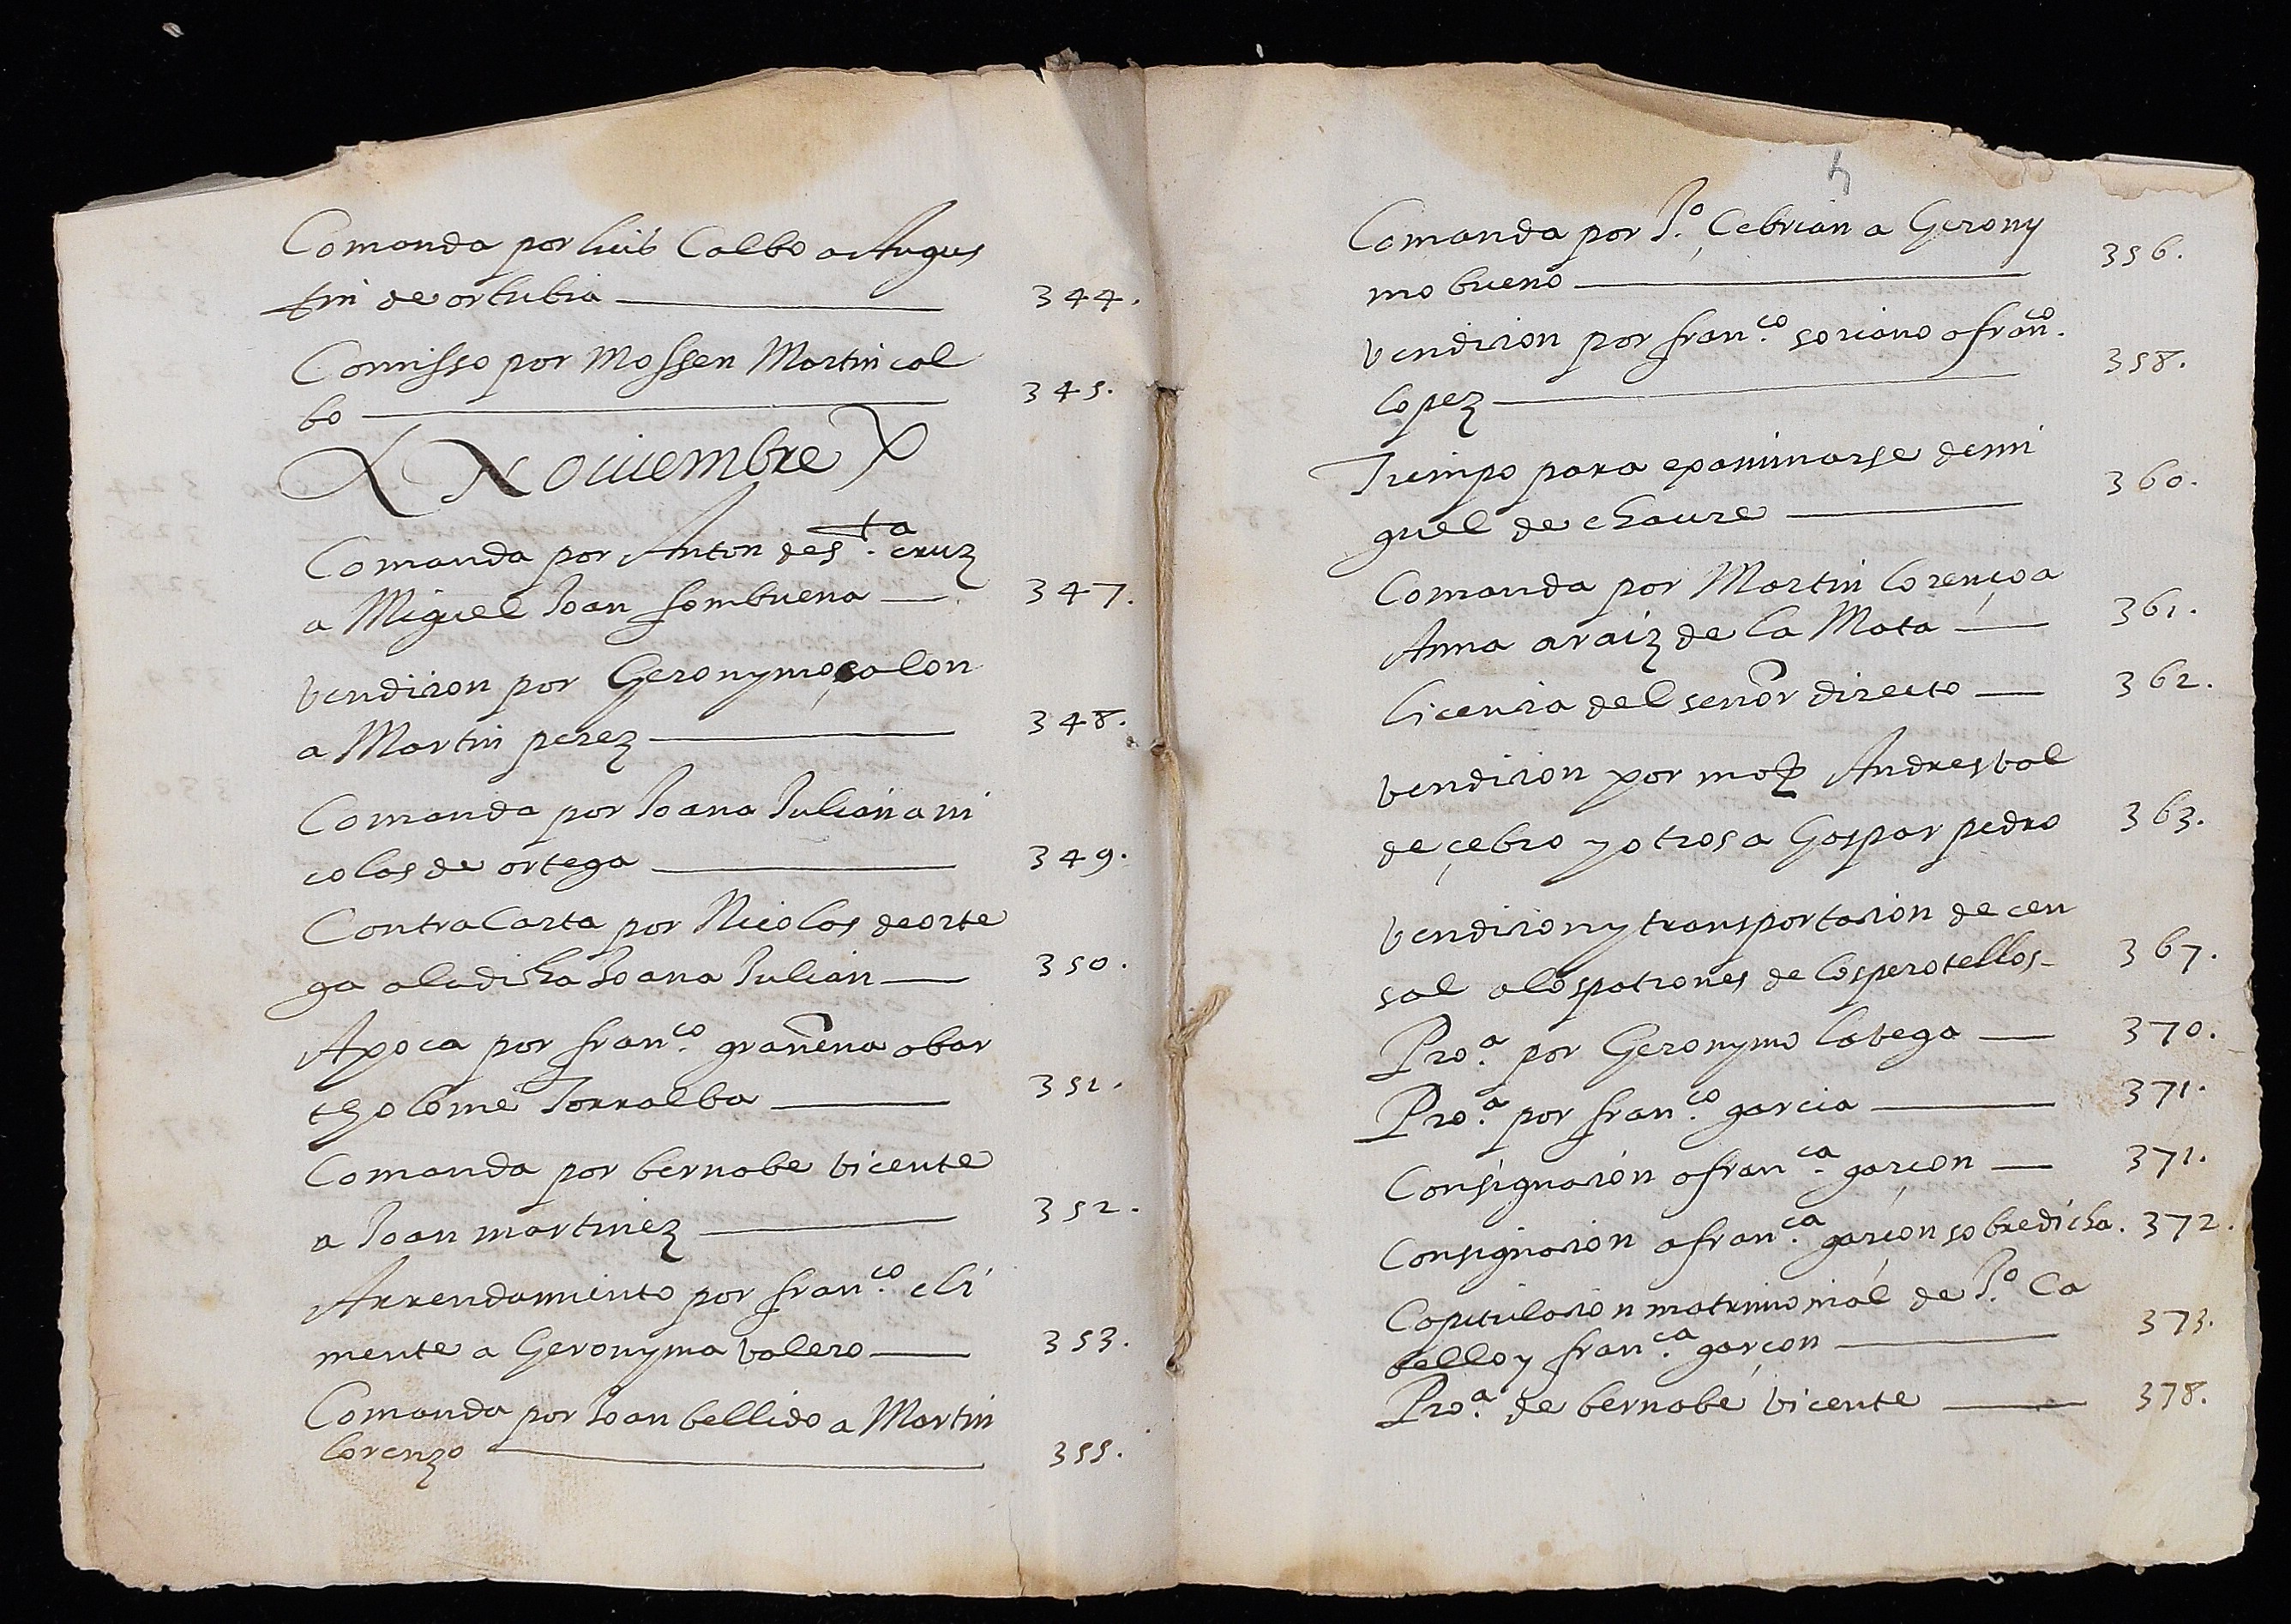 Comanda por luis Calbo a Augus
tin de ortubia 344.
Comisso por Mossen Martin cal
bo 345.
Nouiembre
Comanda por Anton de s.ta cruz
a Miguel Joan sombuena 347.
vendicion por Geronymo çalon
a Martin perez 348.
Comanda por Joana Julian a ni
colas de ortega 349.
Contra Carta por Nicolas de orte
ga a la dicha Joana Julian 350.
Apoca por fran.co grañena a bar
tholome Torralba 351.
Comanda por bernabe vicente
a Joan martinez 352.
Arrendamiento por fran.co cli
mente a Geronyma valero 353.
Comanda por Joan bellido a Martin
lorenzo 355.
4
Comanda por J.o Çebrian a Gerony
mo bueno 356.
vendicion por fran.co soriano a fran.co
lopez 358.
Tiempo para examinarse de mi
guel de chaure 360.
Comanda por Martin lorenço a
Anna araiz de la Mata 361.
licencia del señor directo 362.
vendicion por Andres val
de çebro y otros a Gaspar pedro 363.
vendicion y transportacion de cen
sal a los patrones de los perotellos 367.
Pro.a por Geronymo la vega 370.
Pro.a por fran.co garcia 371.
Consignacion a fran.ca garçon 371.
Consignacion a fran.ca garçon sobredicha. 372.
Capitulacion matrimonial de J.o Ca
bello y fran.ca garçon 373.
Pro.a de bernabe vicente 378.